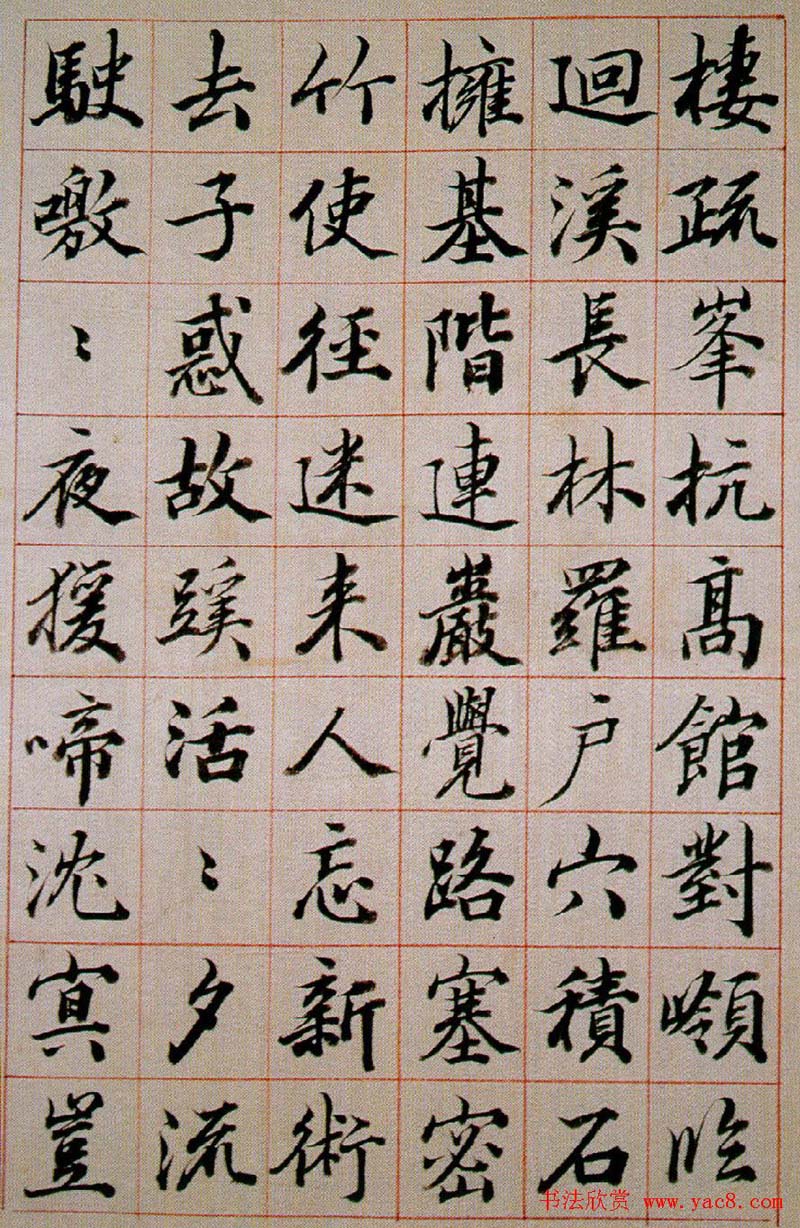 棲疏峯抗髙館對嶺臨
迴溪長林羅户穴積石
擁基階連巖覺路塞密
竹使徑迷来人忘新術
去子惑故蹊活〻夕流
駛噭〻夜猨啼沈冥豈
书法欣赏 www.yac8.com